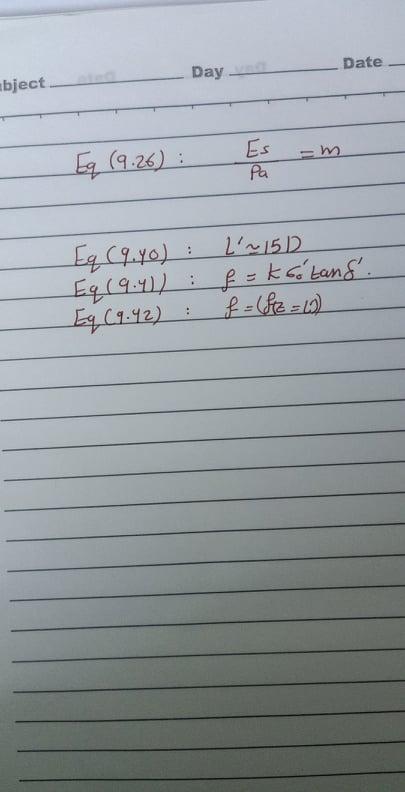 bject Day Date
Eq (9.26) : Es/Pa = m
Eq (9.40) : L' ≃ 15D
Eq (9.41) : f = K σo' tan δ'.
Eq (9.42) : f = (fz = L')